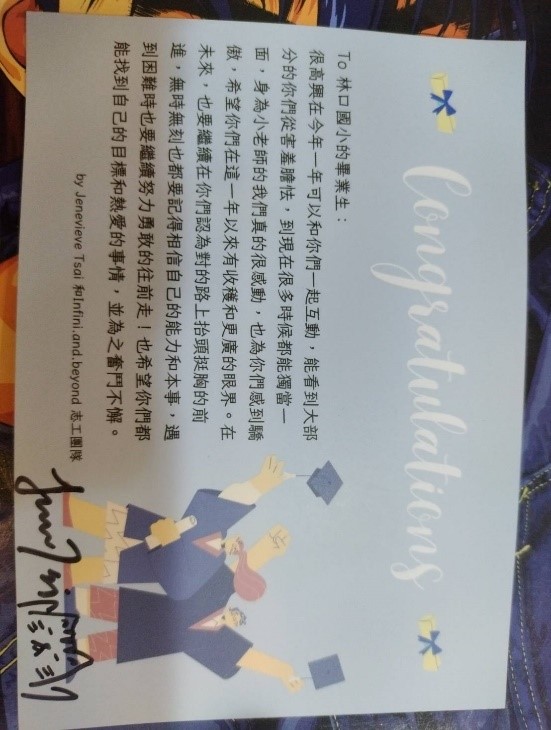 Congratulations
To 林口國小的畢業生：
很高興在今年一年可以和你們一起互動，能看到大部
分的你們從害羞膽怯，到現在很多時候都能獨當一
面，身為小老師的我們真的很感動，也為你們感到驕
傲，希望你們在這一年以來有收穫和更廣的眼界。在
未來，也要繼續在你們認為對的路上抬頭挺胸的前
進，無時無刻也都要記得相信自己的能力和本事，遇
到困難時也要繼續努力勇敢的往前走！也希望你們都
能找到自己的目標和熱愛的事情，並為之奮鬥不懈。
by Jenevieve Tsai 和Infini.and.beyond 志工團隊